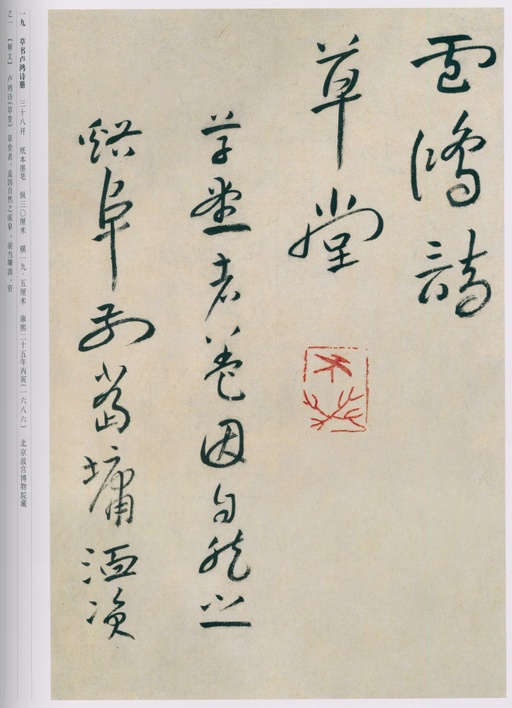 盧鴻詩
草堂
草堂者蓋因自然之
谿阜前當墉洫資
一九 草书卢鸿诗册 三十八开 纸本墨笔 纵三〇厘米 横一九·五厘米 康熙二十五年丙寅(一六八六) 北京故宫博物院藏
之一 【释文】 卢鸿诗(草堂) 草堂者，盖因自然之溪阜，前当墉洫，资